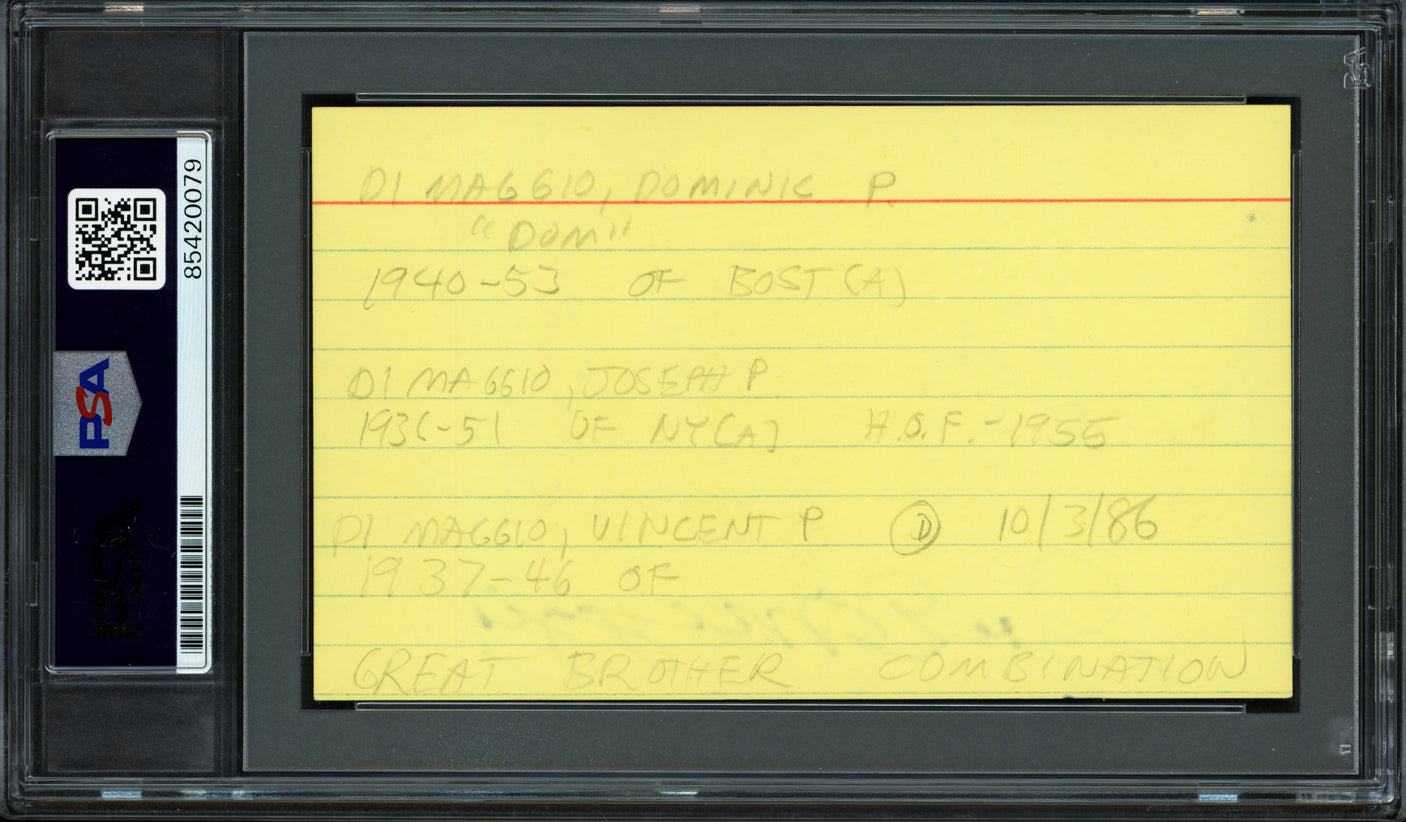 DI MAGGIO, DOMINIC P.
"DOM"
1940-53 OF BOST (A)
DI MAGGIO, JOSEPH P
1936-51 OF NY (A) H.O.F. - 1955
DI MAGGIO, VINCENT P Ⓓ 10/3/86
1937-46 OF
GREAT BROTHER COMBINATION
85420079
PSA
PSA